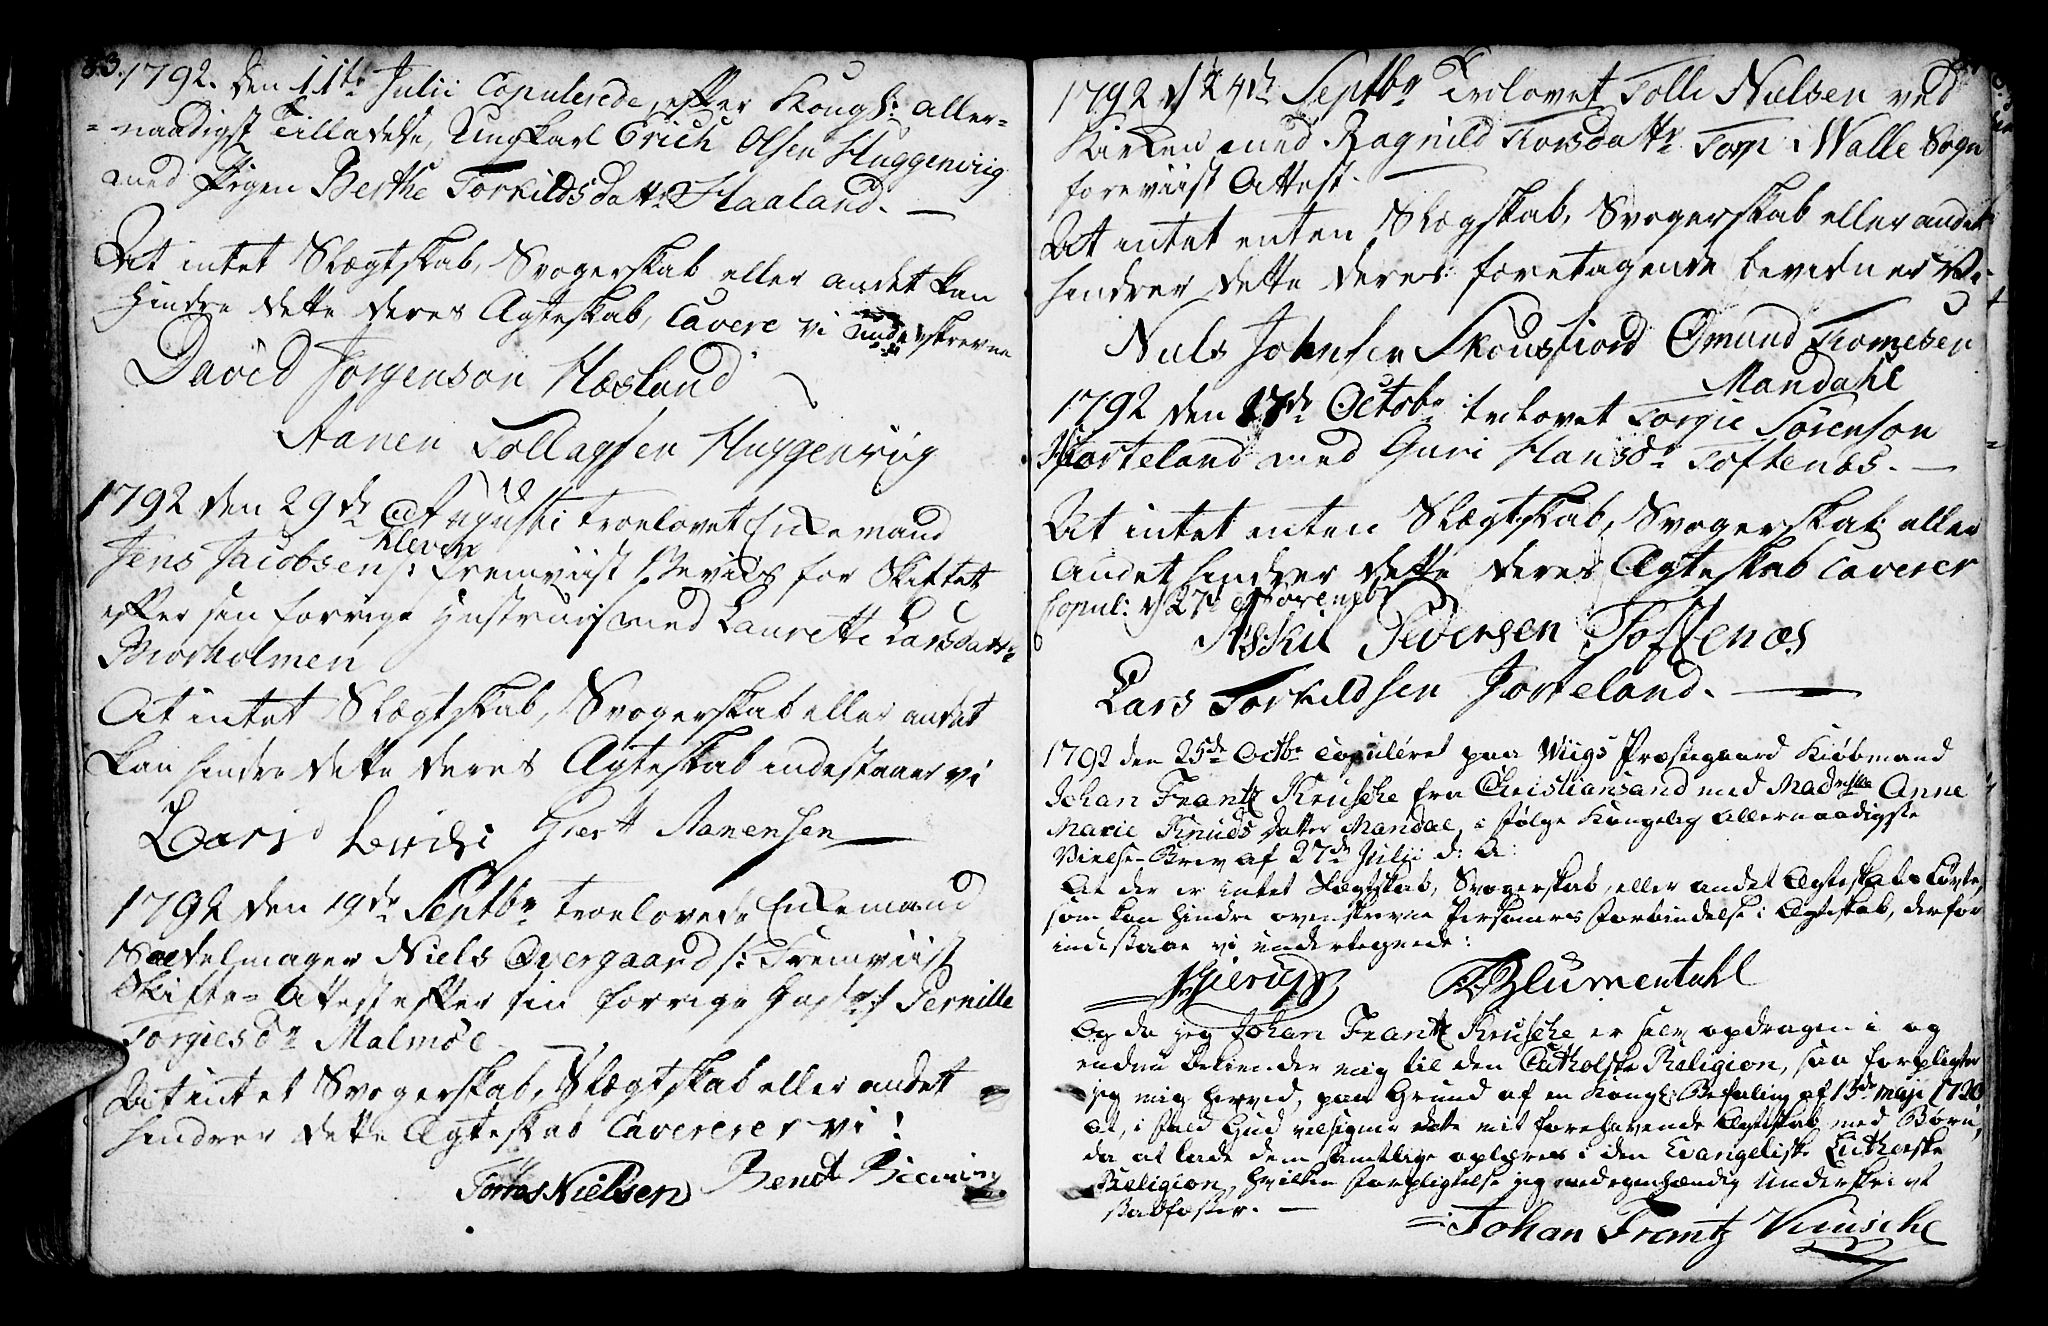 83. 1792. den 11te Julii Copulerede, efter Kongl: aller-
= naadigst Tilladelse, Ungkarl Erich Olsen Huggenviig
med Pigen Berthe Torkildsdattr Haaland. —
At intet Slægtskab, Svogerskab eller andet kan
hindre dette deres Ægteskab, Cavere vi underskrevne
David Jorgenson Hæsland
Aanen Tollagsen Huggenviig
1792 den 29de Augusti troelovet Enkemand
Jens Jacobsen Kleven /: Fremviist Beviis for Skiftet
efter sin forrige Hustrue :/ med Laurette Larsdattr
Biorholmen
At intet Slægtskab, Svogerskab eller andet
kan hindre dette deres Ægteskab indestaaer vi
Lars
Giert Aanensen
1792 den 19de Septbr troelovede Enkemand
Sadelmager Niels Overgaard /: Fremviist
Skifte-Attest efter sin forrige Hustr :/ Pernille
Torgiesdr Malmöe —
At intet Svogerskab, Slægtskab eller andet
hindrer dette Ægteskab Caverer vi!
Torres Nielsen Bendt
1792 d 24de Septbr Trolovet Tolle Nielsen ved
Kirken med Ragnild Torsdattr Torp Walle Sogn
foreviist Attest. —
At intet enten Slægskab, Svogerskab eller andet
hindrer dette deres foretagende bevidner vi
Niels Johnsen Skousfiord Ømund Tomesen
Mandahl
1792 den 17de Octobr trolovet Torgie Sörenson
Hiorteland med Guri Hansdr Toftenes. —
At intet enten Slægtskab, Svogerskab eller
Andet hindrer dette deres Ægteskab Caverer
Copul: d 27de Novembr
Askil Pedersen Toftenæs
Lars Torkildsen Jorteland. —
1792 den 25de Octbr Copuléret paa Wiigs Præstegaard Kiöbmand
Johan Frantz Krusche fra Christiansand med Madmselle Anne
Marie Knuds Datter Mandal, i fölge Kongelig Allernaadigste
Vielse-Brev af 27de Julii d: A:
At der er intet Slægtskab, Svogerskab, eller andet Ægteskabs
som kan hindre ovenskrevne Personers Forbindelse i Ægteskab, derfor
indestaae vi undertegnede:
Hierup Blumentahl
Og da jeg Johan Frantz Krusche er selv opdragen i og
endnu bekiender mig til den Catholske Religion, saa forpligter
jeg mig herved, paa Grund af en Kongl: Befaling af 15de Maji 1728
at, i fald Gud velsigner dette mit forehavende Ægteskab med Børn,
da at lade dem samtlige oplæres i den Evangeliske Lutherske
Religion, hvilken Forpligtelse jeg med egenhændig Underskrivt
stadfæster. —
Johan Frantz Krusche